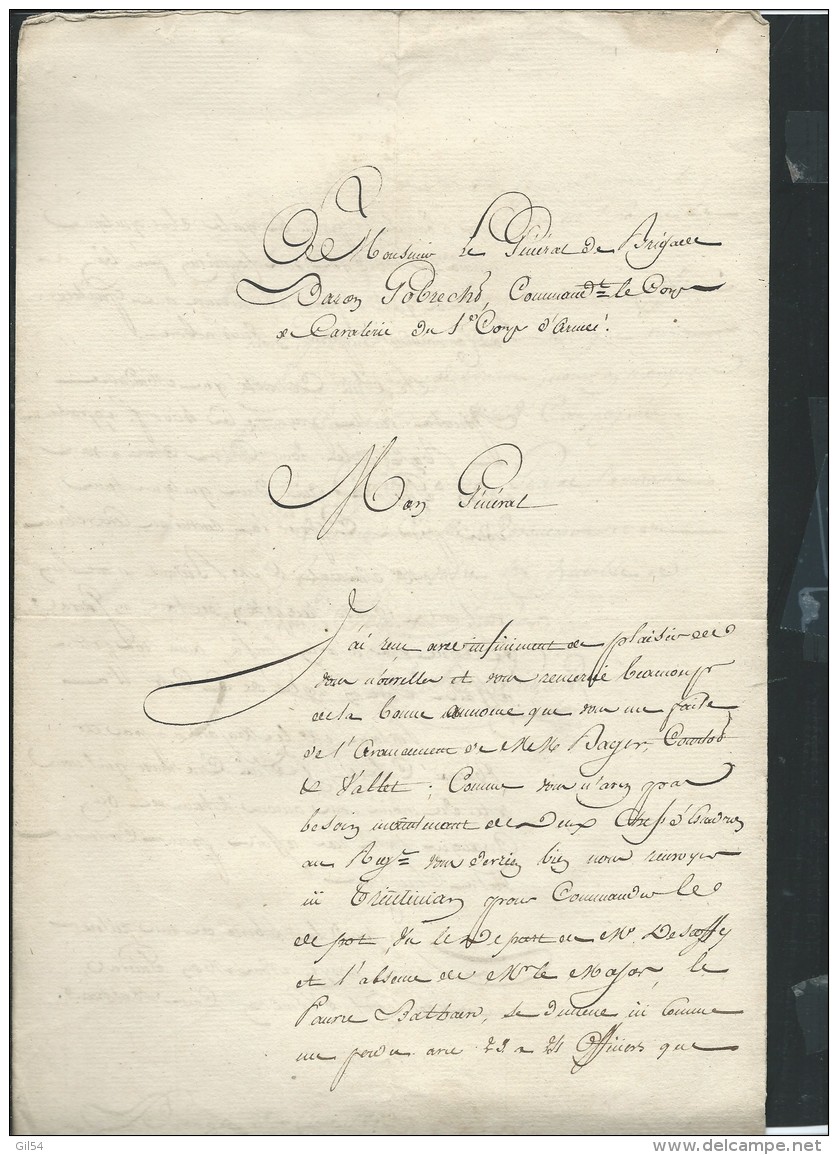 A Monsieur le Général de Brigade
Baron Gobrecht, Commandt le Corps
de Cavalerie du 1er Corps d'Armée.
Mon Général
J'ai reçu avec infiniment de plaisir de
vous nouvelles et vous remercie beaucoup
de la bonne annonce que vous me faite
de l'Avancement de MM Bager,
& Vallet; Comme vous n'avez pas
besoin maintenant de deux Chefs d'Escadron
au Regt vous devriez bien nous renvoyer
ici pour Commander le
depot, vu le Depart de Mr Desoffy
et l'absence de Mr le Major, le
Pauvre Balbain, se demene ici Comme
un perdu avec 23 a 24 Officiers que
Gil54
delcampe.net